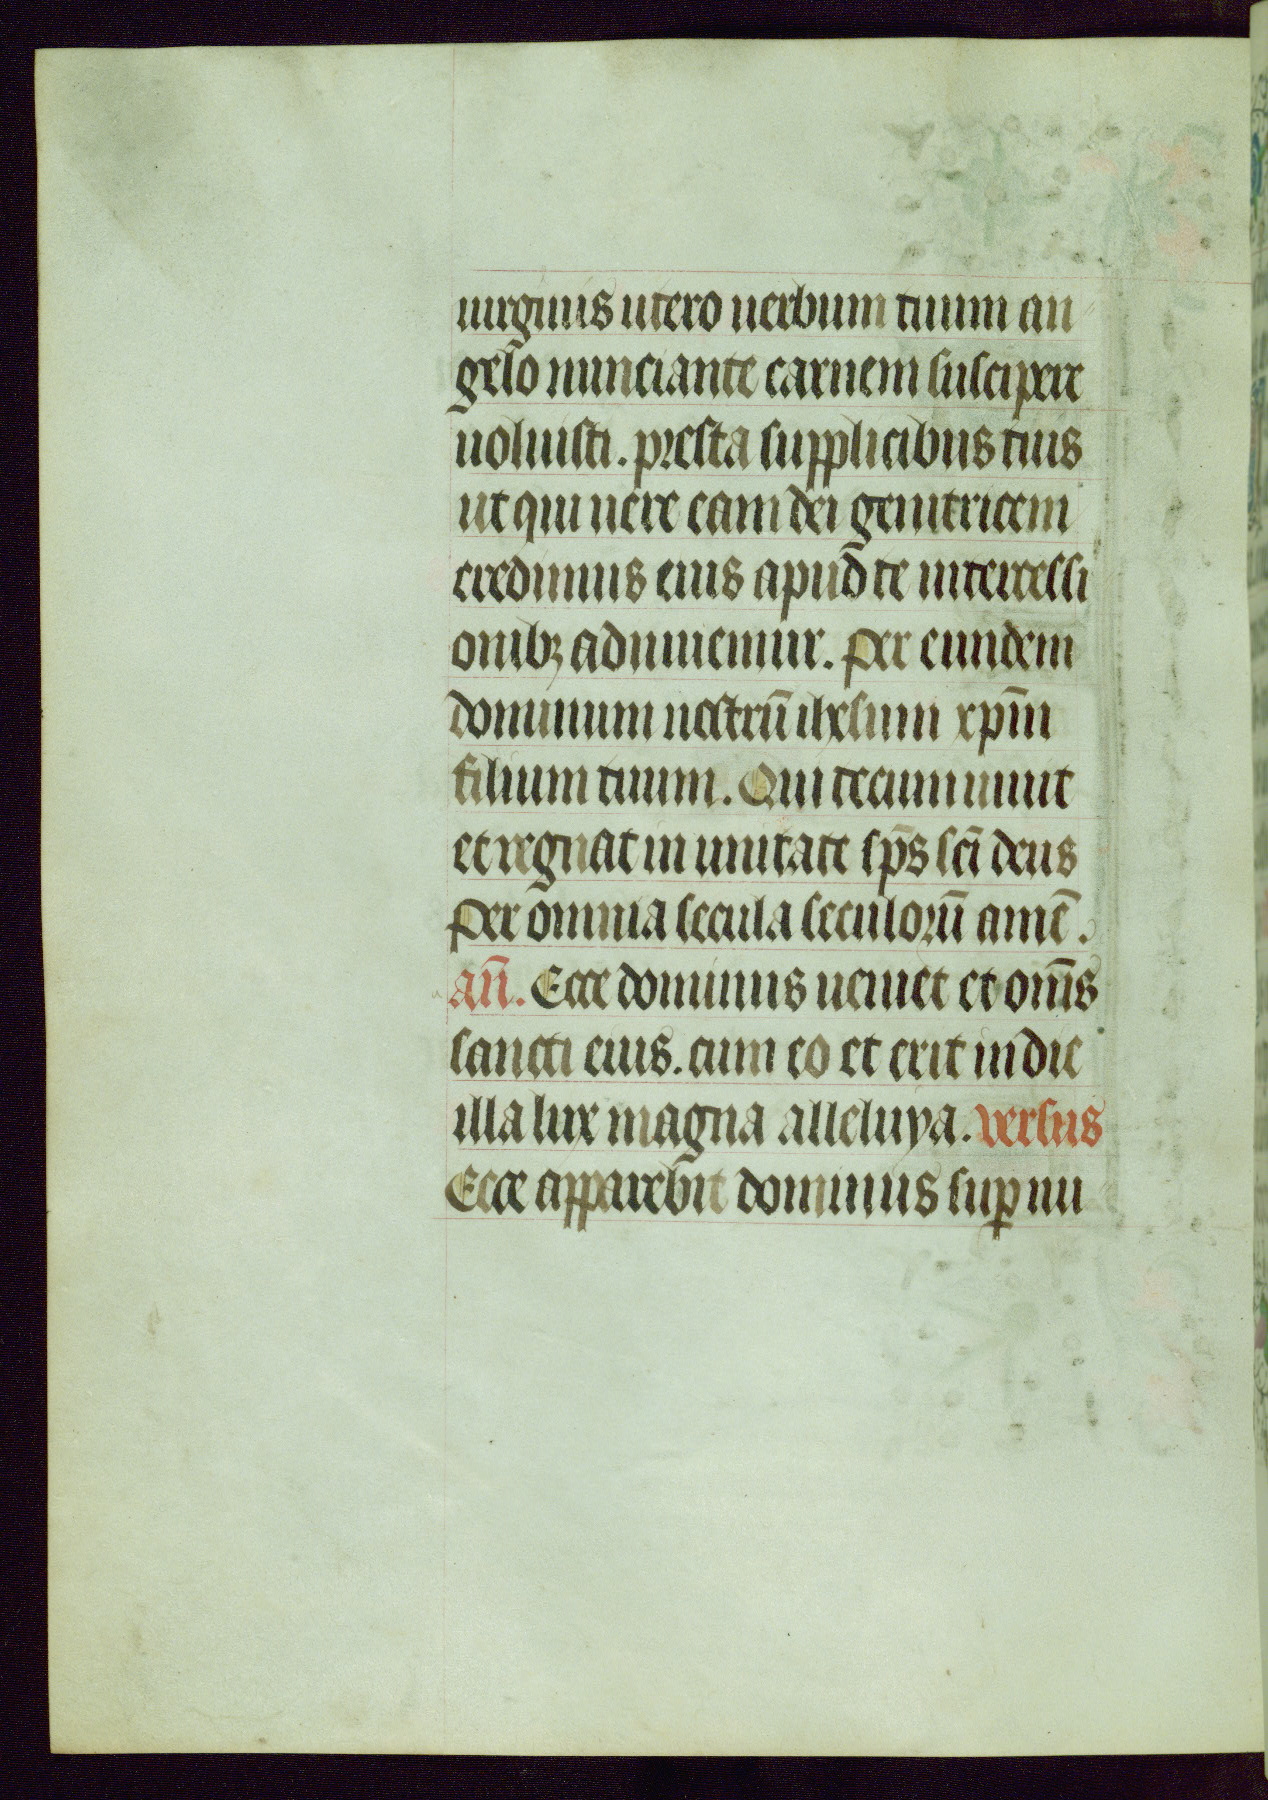 uirginis utero uerbum tuum an
gelo nunciante carnem suscipere
uoluisti. presta supplicibus tuis
ut qui uere eam dei genitricem
credimus eius apud te intercessi
onibꝫ adiuuemur. Per eundem
dominum nestrū ihesum xp̄m
filium tuum. Qui tecum uiuit
et regnat in unitate sp̄s sc̄i deus
Per omnia secula seculorū amē.
an̄. Ecce dominus ueniet et om̄s
sancti eius. cum eo et erit in die
illa lux magna alleluya. versus
Ecce apparebit dominus suꝑ nu